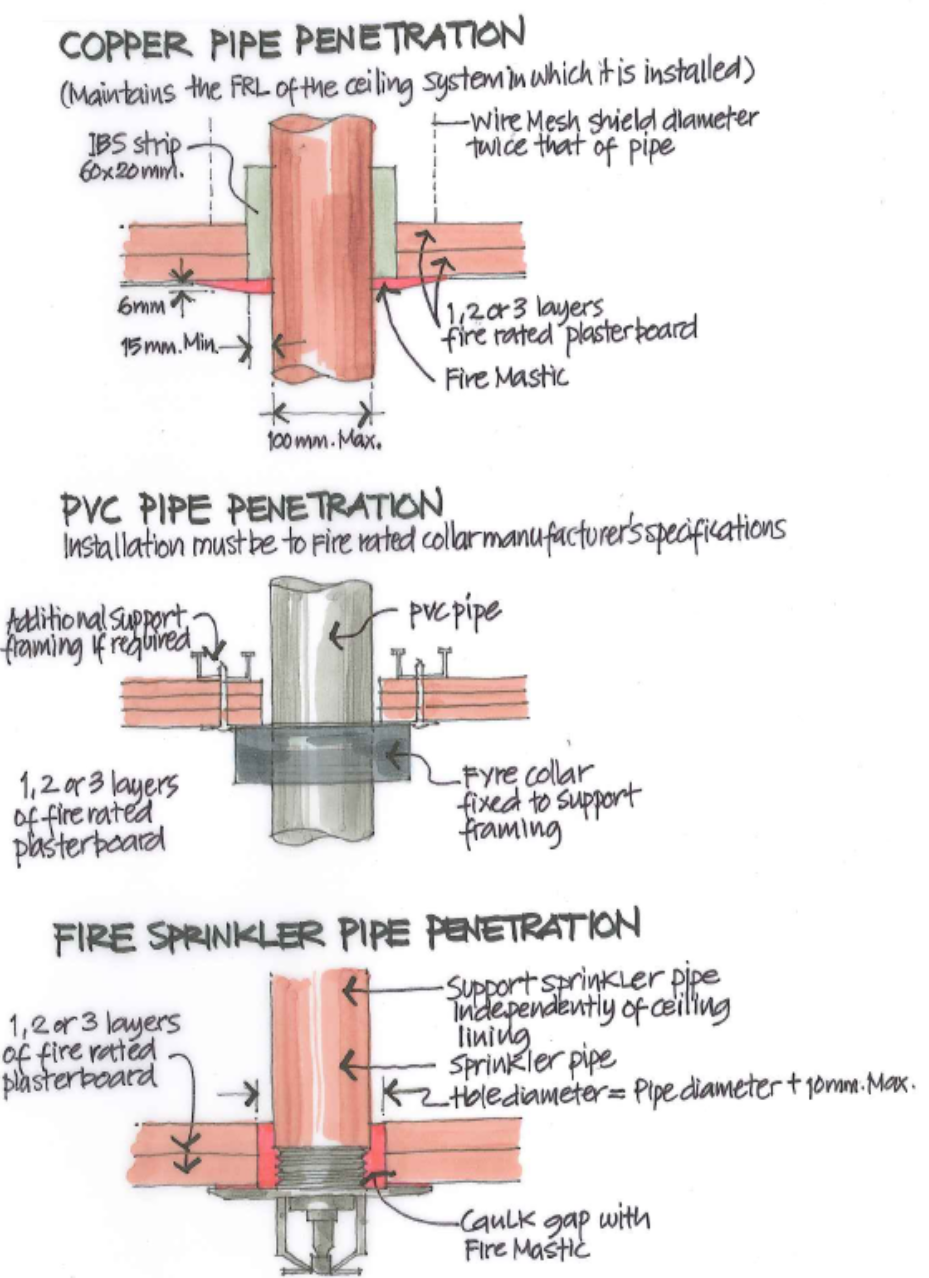 COPPER PIPE PENETRATION
(Maintains the FRL of the ceiling system in which it is installed)
IBS strip
60x20mm.
Wire Mesh shield diameter
twice that of pipe
6mm
15mm. Min.
1, 2 or 3 layers
fire rated plasterboard
Fire Mastic
100mm. Max.
PVC PIPE PENETRATION
Installation must be to Fire rated collar manufacturer's specifications
Additional Support
framing if required
PVC pipe
1, 2 or 3 layers
of fire rated
plasterboard
Fyre collar
fixed to support
framing
FIRE SPRINKLER PIPE PENETRATION
Support sprinkler pipe
Independently of ceiling
lining
1, 2 or 3 layers
of fire rated
plasterboard
Sprinkler pipe
Hole diameter = Pipe diameter + 10mm. Max.
Caulk gap with
Fire Mastic